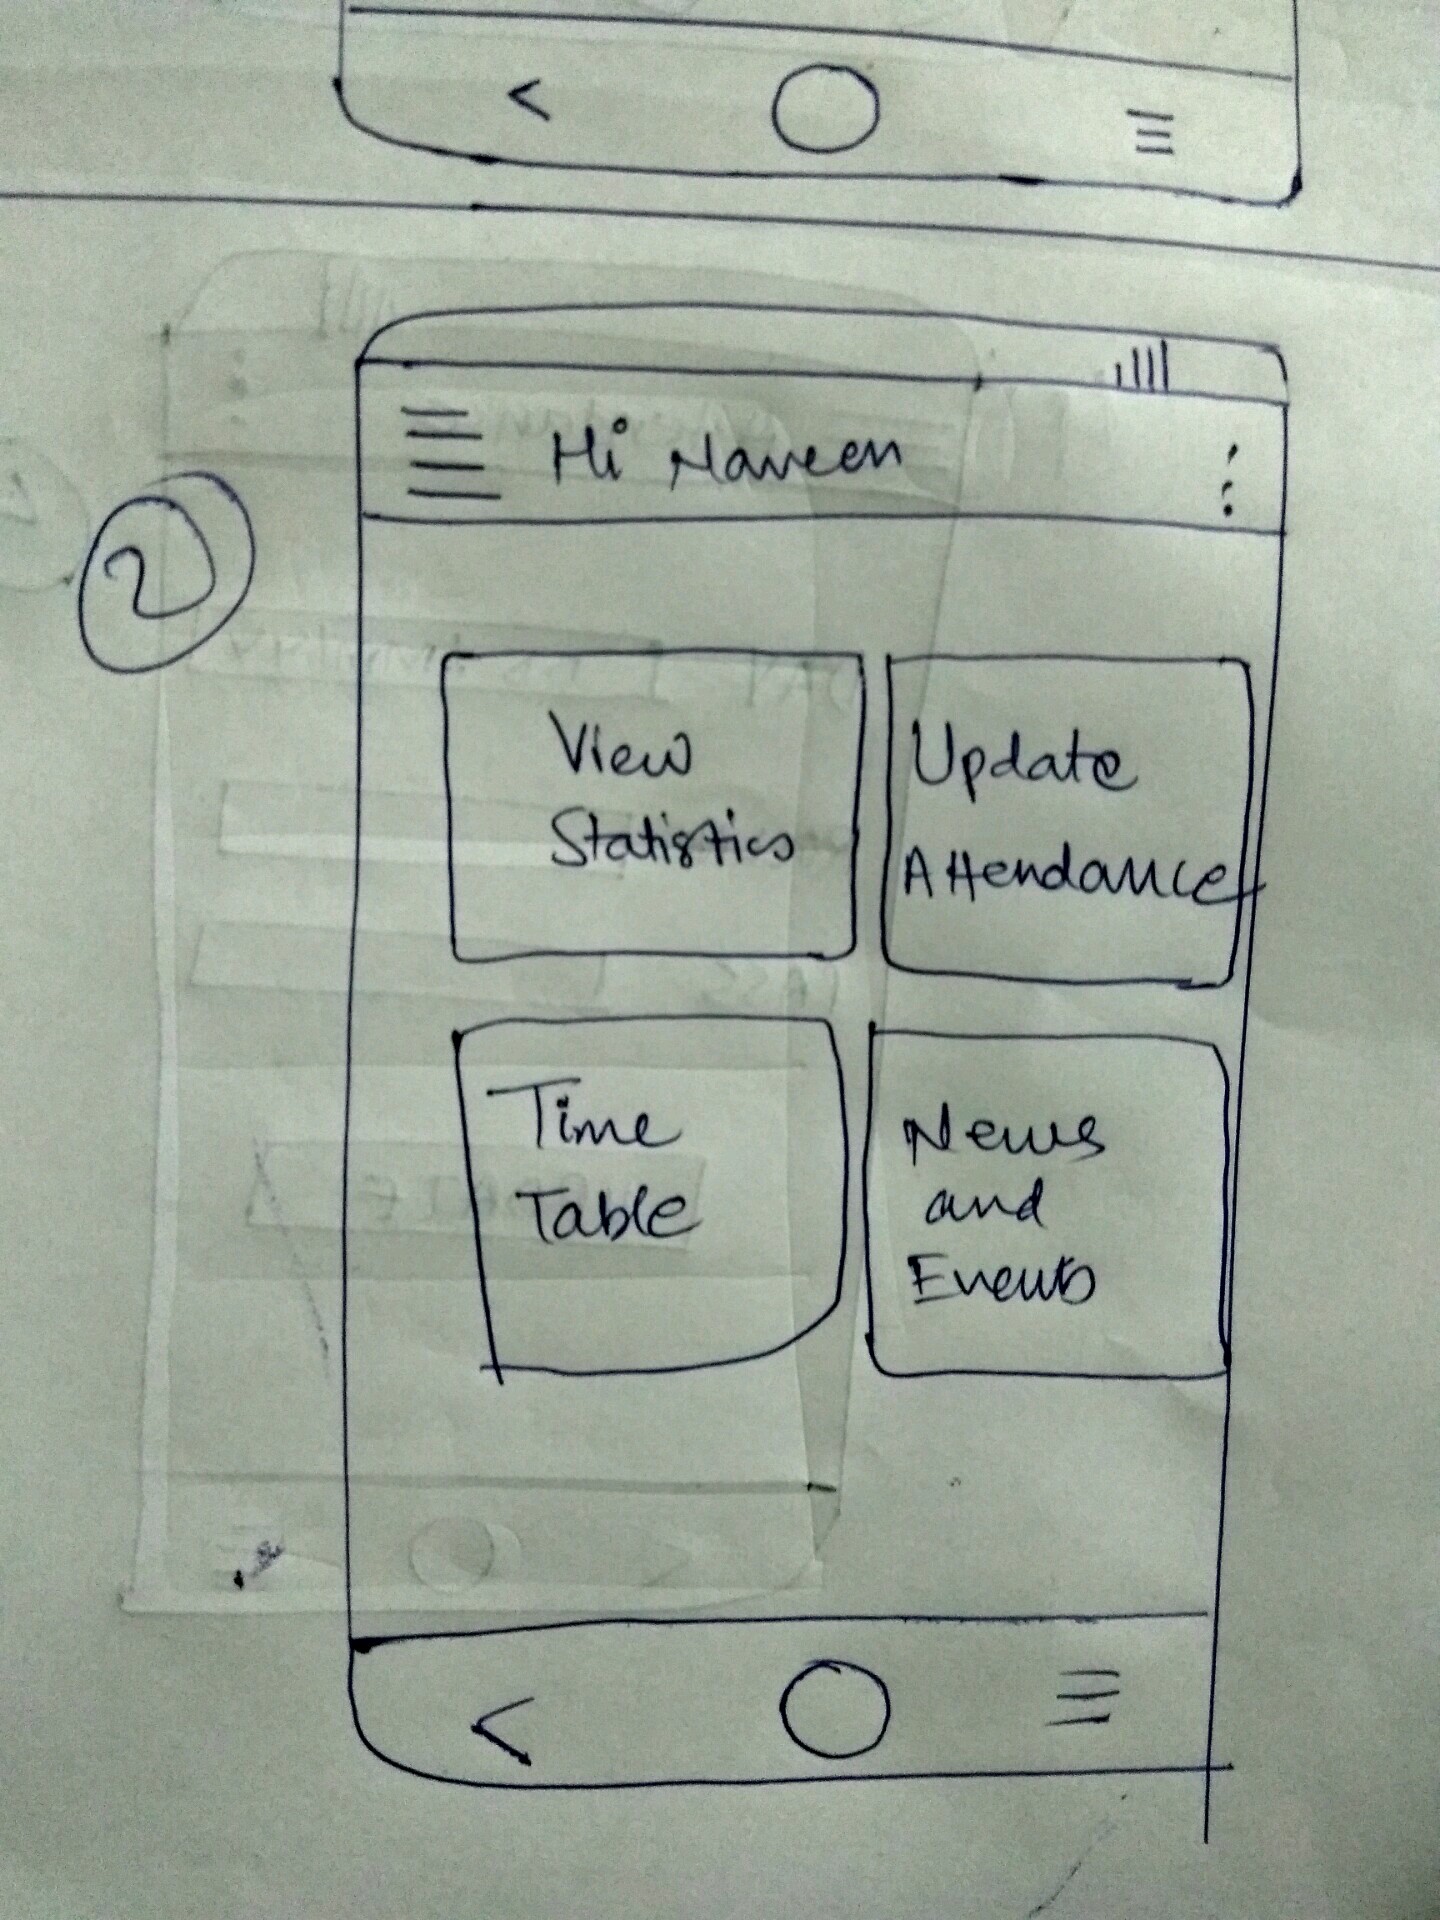 2
Hi Naveen
View
Statistics
Update
Attendance
Time
Table
News
and
Events